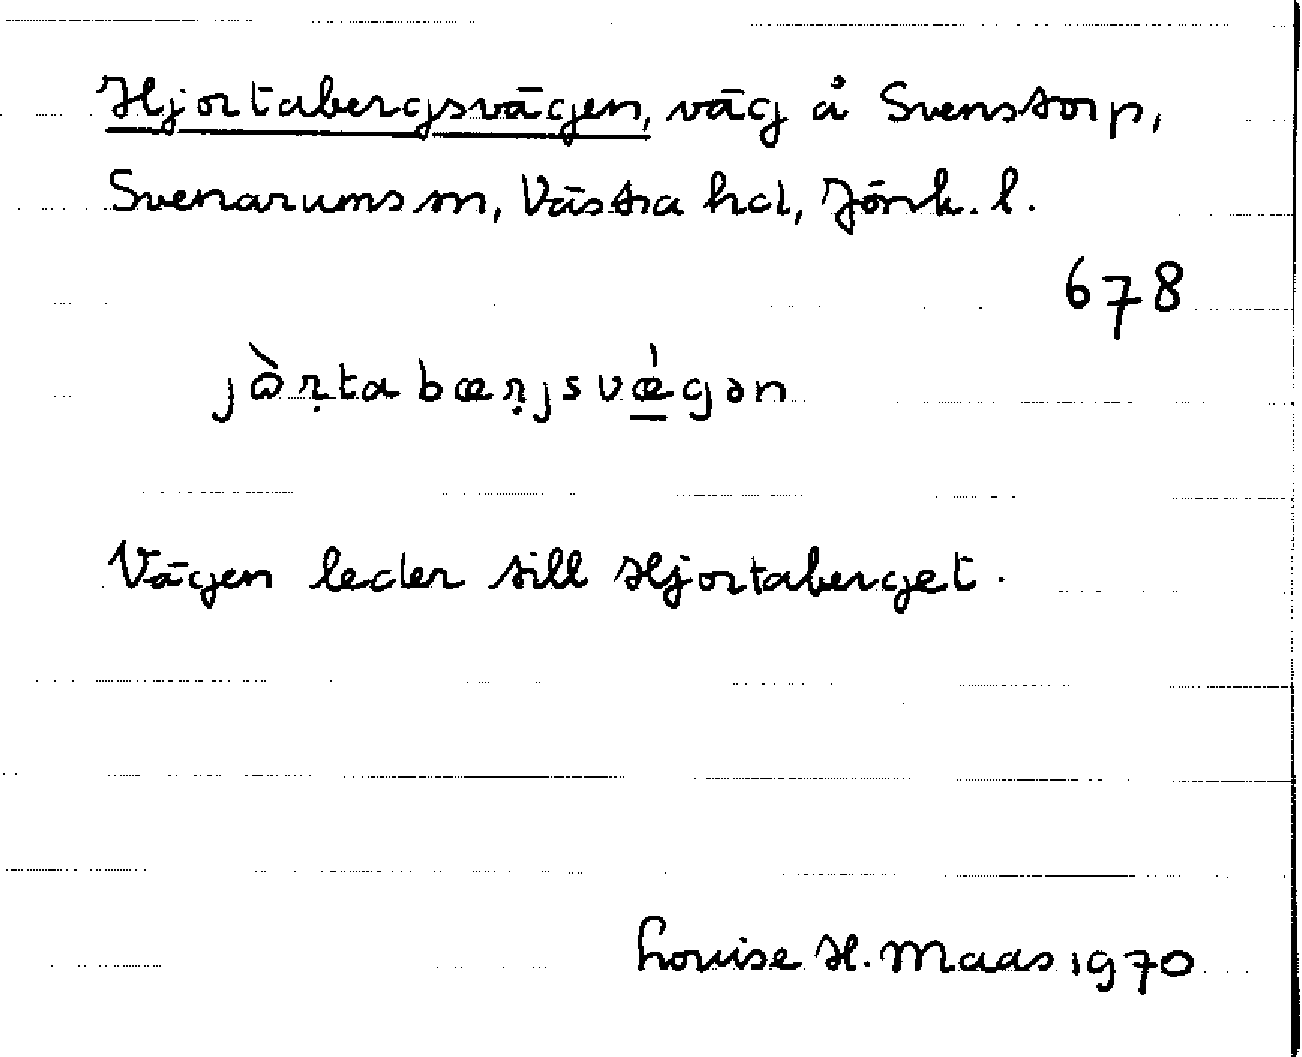 Hjortabergsvägen, väg å Svenstorp,
Svenarums sn, Västra hd, Jönk. l.
678
jòṛta bæṛjs vǽgən
Vägen leder till Hjortaberget.
Louise H. Maas 1970